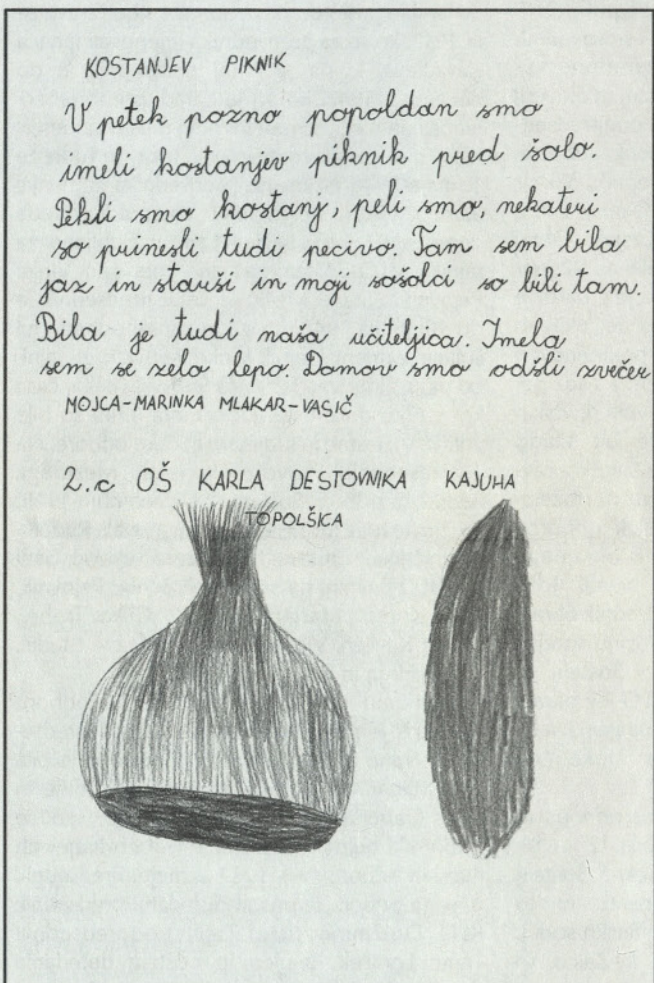 KOSTANJEV PIKNIK
V petek pozno popoldan smo
imeli kostanjev piknik pred šolo.
Pekli smo kostanj, peli smo, nekateri
so prinesli tudi pecivo. Tam sem bila
jaz in starši in moji sošolci so bili tam.
Bila je tudi naša učiteljica. Imela
sem se zelo lepo. Domov smo odšli zvečer
MOJCA-MARINKA MLAKAR-VASIČ
2.c OŠ KARLA DESTOVNIKA KAJUHA
TOPOLŠICA